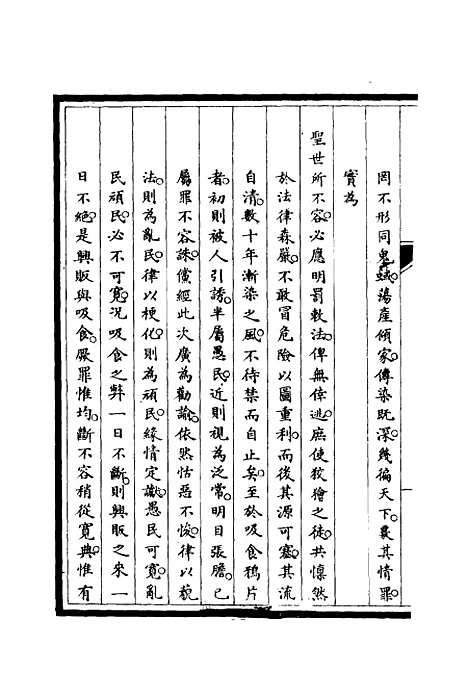 罔不形同鬼蜮。蕩產傾家。傳染既深。幾徧天下。覈其情罪。
實為
聖世所不容。必應明罰敕法。俾無倖逃。庶使狡獪之徒。共懍然
於法律森嚴。不敢冒危險以圖重利。而後其源可塞。其流
自清。數十年漸染之風。不待禁而自止矣。至於吸食鴉片
者。初則被人引誘。半屬愚民。近則視為泛常。明目張膽。已
屬罪不容誅。儻經此次廣為勸諭。依然怙惡不悛。律以藐
法。則為亂民。律以梗化。則為頑民。緣情定讞。愚民可寬。亂
民頑民。必不可寬。況吸食之弊一日不斷。則興販之來一
日不絕。是興販與吸食。厥罪惟均。斷不容稍從寬典。惟有